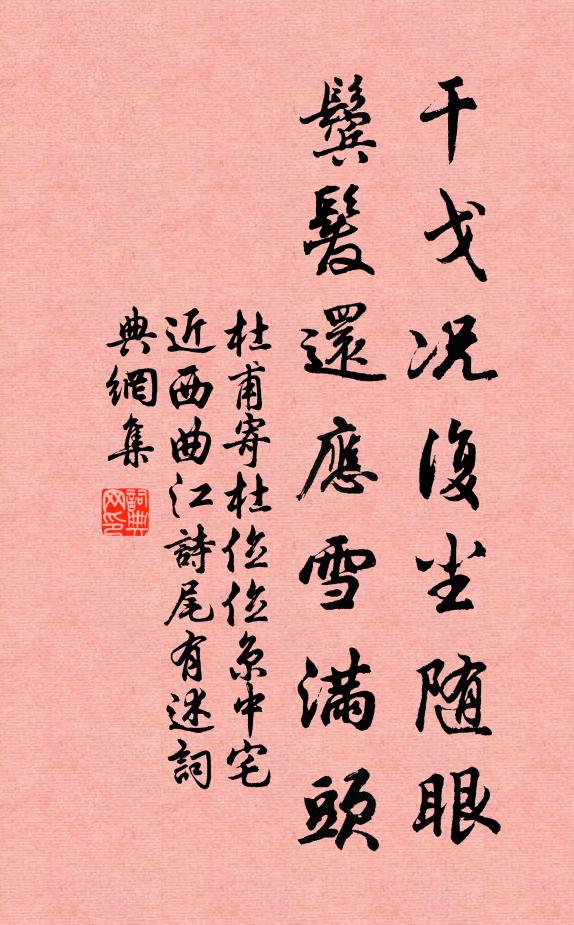 干戈况復尘随眼
鬢髮還應雪滿頭
杜甫寄杜位位京中宅
近西曲江詩尾有述詞
典網集
詞典网印